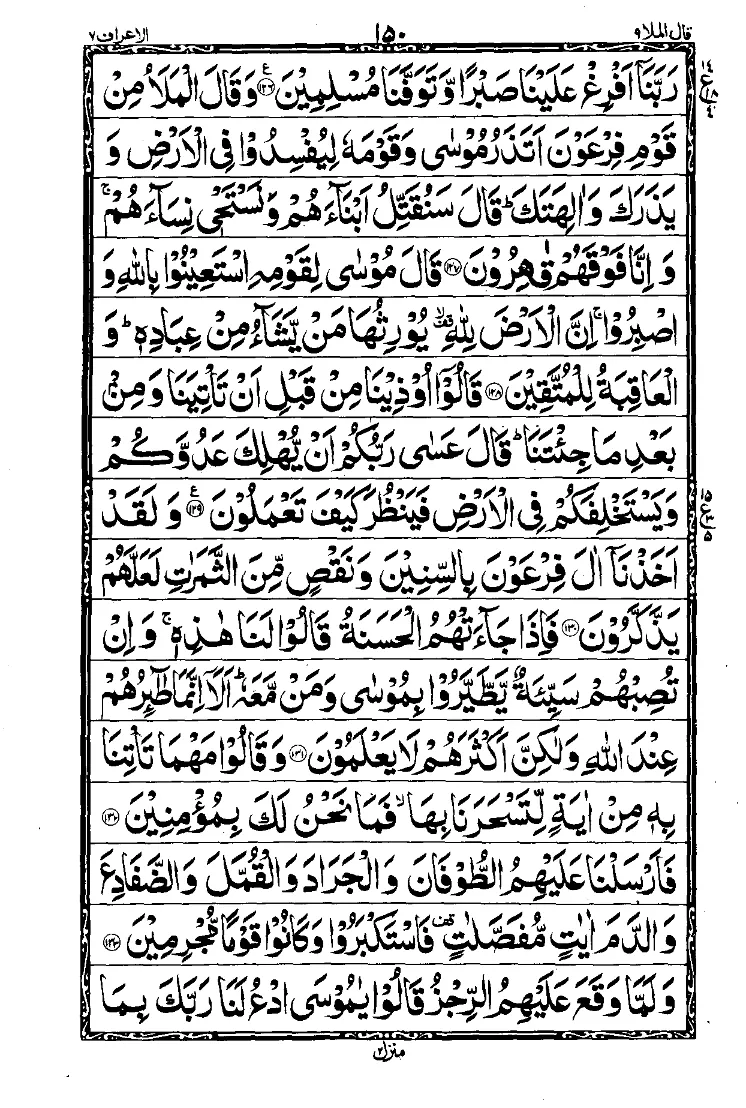 قال الملا ۹ ۱۵۰ الاعراف ۷
رَبَّنَاۤ اَفْرِغْ عَلَیْنَا صَبْرًا وَّ تَوَفَّنَا مُسْلِمِیْنَ ﴿۱۲۶﴾ وَ قَالَ الْمَلَاُ مِنْ
قَوْمِ فِرْعَوْنَ اَتَذَرُ مُوْسٰی وَ قَوْمَهٗ لِیُفْسِدُوْا فِی الْاَرْضِ وَ
یَذَرَكَ وَ اٰلِهَتَكَ ؕ قَالَ سَنُقَتِّلُ اَبْنَآءَهُمْ وَ نَسْتَحْیٖ نِسَآءَهُمْ ۚ
وَ اِنَّا فَوْقَهُمْ قٰهِرُوْنَ ﴿۱۲۷﴾ قَالَ مُوْسٰی لِقَوْمِهِ اسْتَعِیْنُوْا بِاللّٰهِ وَ
اصْبِرُوْا ۚ اِنَّ الْاَرْضَ لِلّٰهِ ۙ۫ یُوْرِثُهَا مَنْ یَّشَآءُ مِنْ عِبَادِهٖ ؕ وَ
الْعَاقِبَةُ لِلْمُتَّقِیْنَ ﴿۱۲۸﴾ قَالُوْۤا اُوْذِیْنَا مِنْ قَبْلِ اَنْ تَاْتِیَنَا وَ مِنْۢ
بَعْدِ مَا جِئْتَنَا ؕ قَالَ عَسٰی رَبُّكُمْ اَنْ یُّهْلِكَ عَدُوَّكُمْ
وَ یَسْتَخْلِفَكُمْ فِی الْاَرْضِ فَیَنْظُرَ كَیْفَ تَعْمَلُوْنَ ﴿۱۲۹﴾ وَ لَقَدْ
اَخَذْنَاۤ اٰلَ فِرْعَوْنَ بِالسِّنِیْنَ وَ نَقْصٍ مِّنَ الثَّمَرٰتِ لَعَلَّهُمْ
یَذَّكَّرُوْنَ ﴿۱۳۰﴾ فَاِذَا جَآءَتْهُمُ الْحَسَنَةُ قَالُوْا لَنَا هٰذِهٖ ۚ وَ اِنْ
تُصِبْهُمْ سَیِّئَةٌ یَّطَّیَّرُوْا بِمُوْسٰی وَ مَنْ مَّعَهٗ ؕ اَلَاۤ اِنَّمَا طٰٓئِرُهُمْ
عِنْدَ اللّٰهِ وَ لٰكِنَّ اَكْثَرَهُمْ لَا یَعْلَمُوْنَ ﴿۱۳۱﴾ وَ قَالُوْا مَهْمَا تَاْتِنَا
بِهٖ مِنْ اٰیَةٍ لِّتَسْحَرَنَا بِهَا ۙ فَمَا نَحْنُ لَكَ بِمُؤْمِنِیْنَ ﴿۱۳۲﴾
فَاَرْسَلْنَا عَلَیْهِمُ الطُّوْفَانَ وَ الْجَرَادَ وَ الْقُمَّلَ وَ الضَّفَادِعَ
وَ الدَّمَ اٰیٰتٍ مُّفَصَّلٰتٍ ۫ فَاسْتَكْبَرُوْا وَ كَانُوْا قَوْمًا مُّجْرِمِیْنَ ﴿۱۳۳﴾
وَ لَمَّا وَقَعَ عَلَیْهِمُ الرِّجْزُ قَالُوْا یٰمُوْسَی ادْعُ لَنَا رَبَّكَ بِمَا
منزل ۲